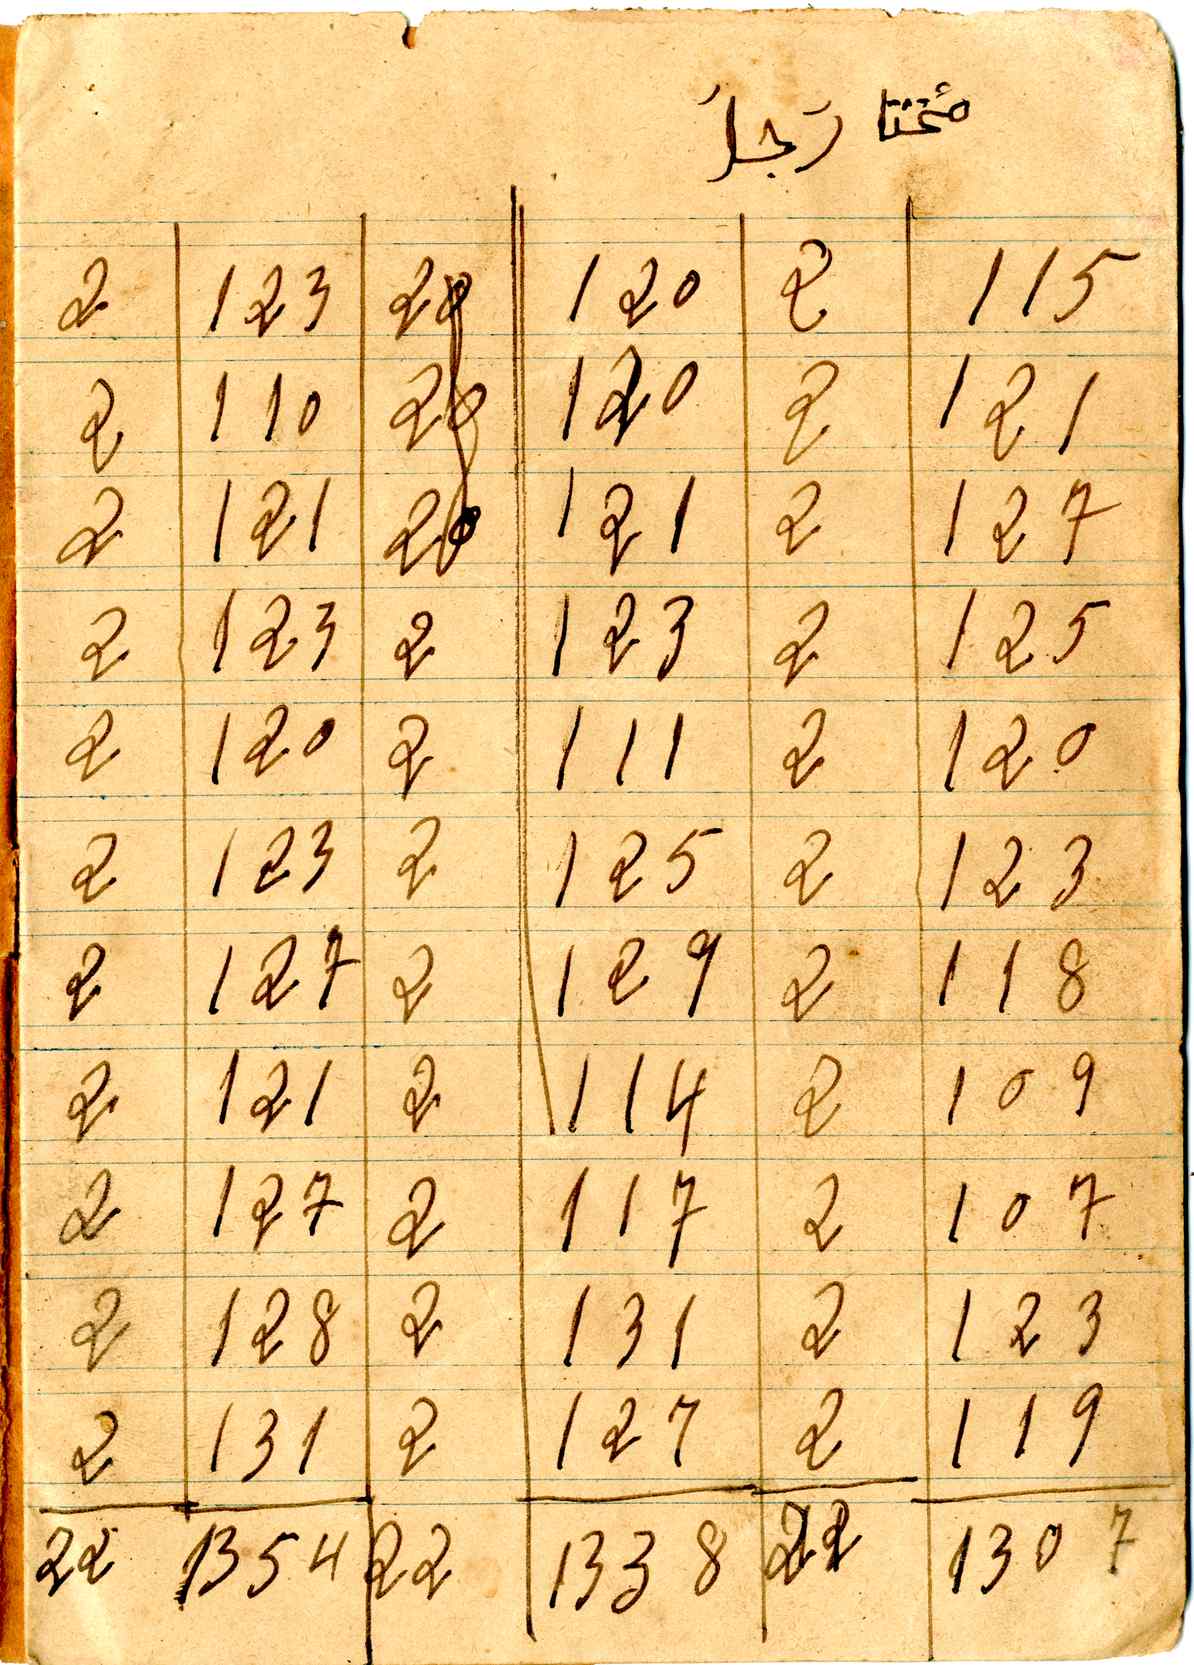 رَجلُ
2 123 20 120 2 115
2 110 20 120 2 121
2 121 20 121 2 127
2 123 2 123 2 125
2 120 2 111 2 120
2 123 2 125 2 123
2 127 2 129 2 118
2 121 2 114 2 109
2 127 2 117 2 107
2 128 2 131 2 123
2 131 2 127 2 119
22 1354 22 1338 22 1307